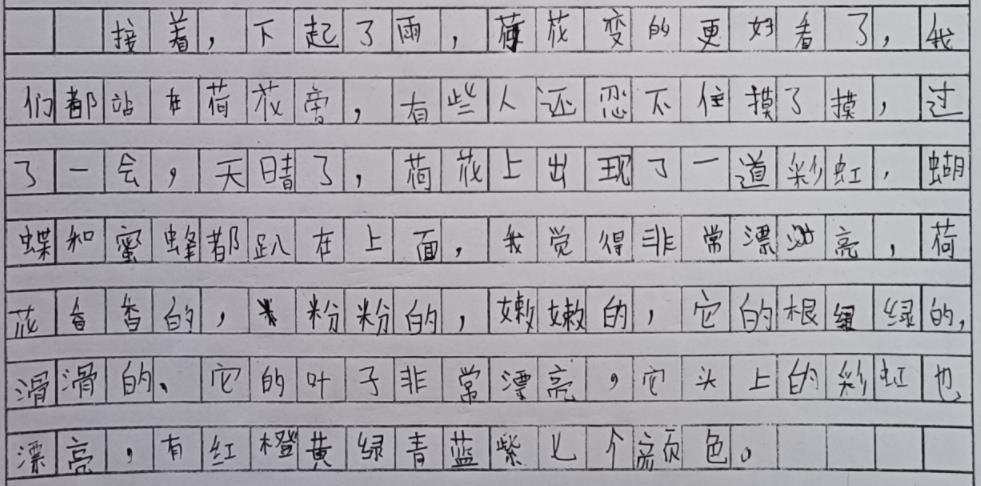 接着，下起了雨，荷花变的更好看了，我
们都站在荷花旁，有些人还忍不住摸了摸，过
了一会，天晴了，荷花上出现了一道彩虹，蝴
蝶和蜜蜂都趴在上面，我觉得非常漂亮，荷
花香香的，粉粉的，嫩嫩的，它的根绿绿的，
滑滑的、它的叶子非常漂亮，它头上的彩虹也
漂亮，有红橙黄绿青蓝紫七个颜色。